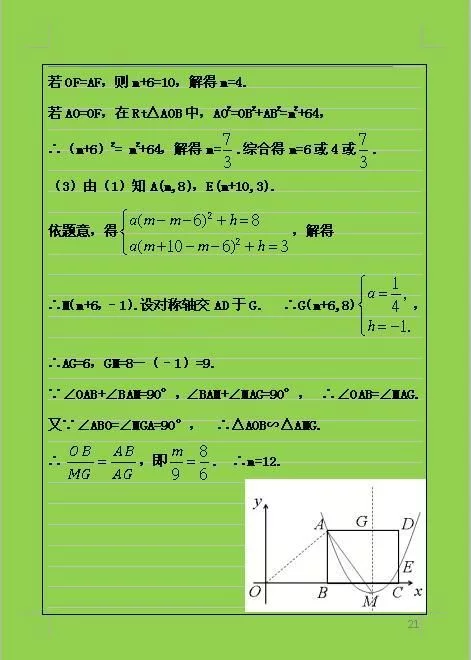 若OF=AF，则m+6=10，解得m=4.
若AO=OF，在Rt△AOB中，AO²=OB²+AB²=m²+64，
∴（m+6）²= m²+64，解得m=7/3.综合得m=6或4或7/3.
（3）由（1）知A(m,8)，E(m+10,3).
依题意，得{a(m−m−6)²+h=8
a(m+10−m−6)²+h=3，解得
∴M(m+6,﹣1).设对称轴交AD于G. ∴G(m+6,8){a=1/4,
h=−1.，
∴AG=6，GM=8—（﹣1）=9.
∵∠OAB+∠BAM=90°，∠BAM+∠MAG=90°， ∴∠OAB=∠MAG.
又∵∠ABO=∠MGA=90°， ∴△AOB∽△AMG.
∴OB/MG=AB/AG，即m/9=8/6. ∴m=12.
y
A G D
E
O B M C x
21